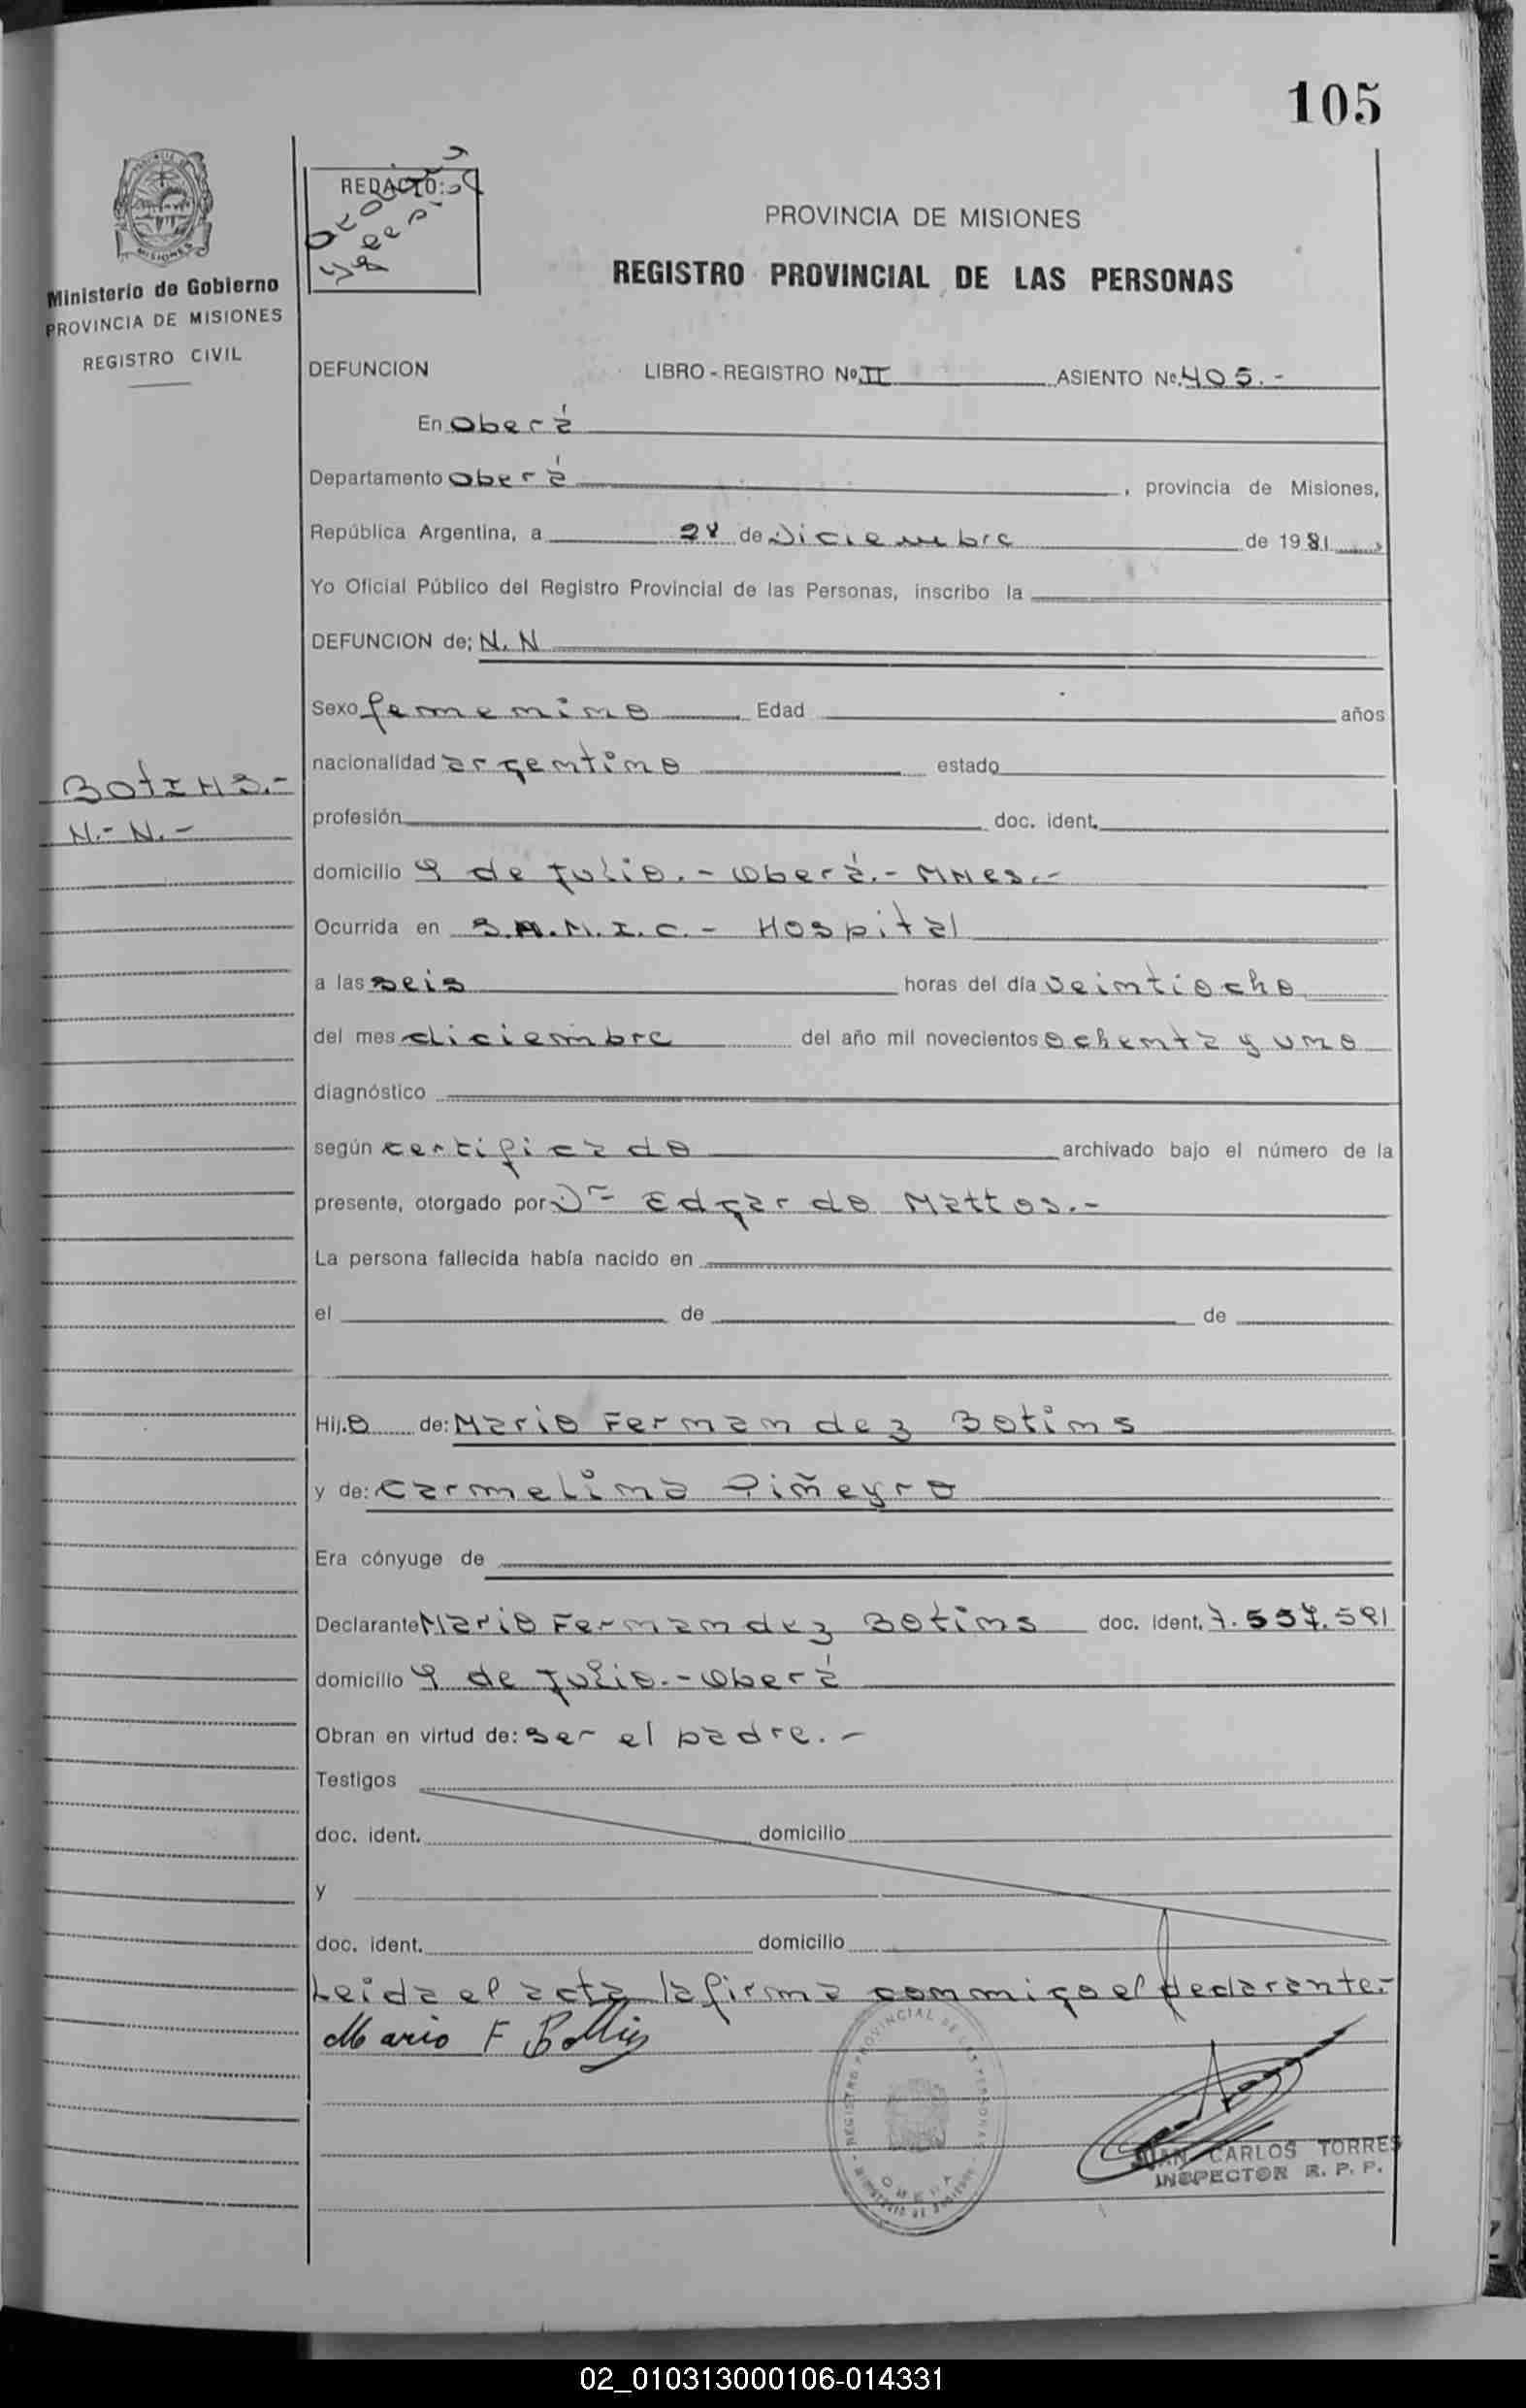 105
MISIONES
Ministerio de Gobierno
PROVINCIA DE MISIONES
REGISTRO CIVIL
REDACTO:
PROVINCIA DE MISIONES
REGISTRO PROVINCIAL DE LAS PERSONAS
DEFUNCION LIBRO-REGISTRO Nº II ASIENTO Nº 405.-
En Oberá
Departamento Oberá , provincia de Misiones,
República Argentina, a 28 de Diciembre de 1981
Yo Oficial Público del Registro Provincial de las Personas, inscribo la
DEFUNCION de: N. N
Sexo femenino Edad años
nacionalidad argentino estado
BOTINS.-
N.- N.-
profesión doc. ident.
domicilio 9 de Julio.- Oberá.- Mnes.-
Ocurrida en S.A.M.I.C.- Hospital
a las seis horas del día veintiocho
del mes diciembre del año mil novecientos ochenta y uno
diagnóstico
según certificado archivado bajo el número de la
presente, otorgado por Dr Edgardo Mattos.-
La persona fallecida había nacido en
el de de
Hij.o de: Mario Fernandez Botins
y de: Carmelina Piñeyro
Era cónyuge de
Declarante Mario Fernandez Botins doc. ident. 7.557.591
domicilio 9 de Julio.- Oberá
Obran en virtud de: ser el padre.-
Testigos
doc. ident. domicilio
y
doc. ident. domicilio
Leida el acta la firma conmigo el declarante.-
Mario F Bottins
REGISTRO PROVINCIAL DE LAS PERSONAS
JUAN CARLOS TORRES
INSPECTOR R. P. P.
02_010313000106-014331